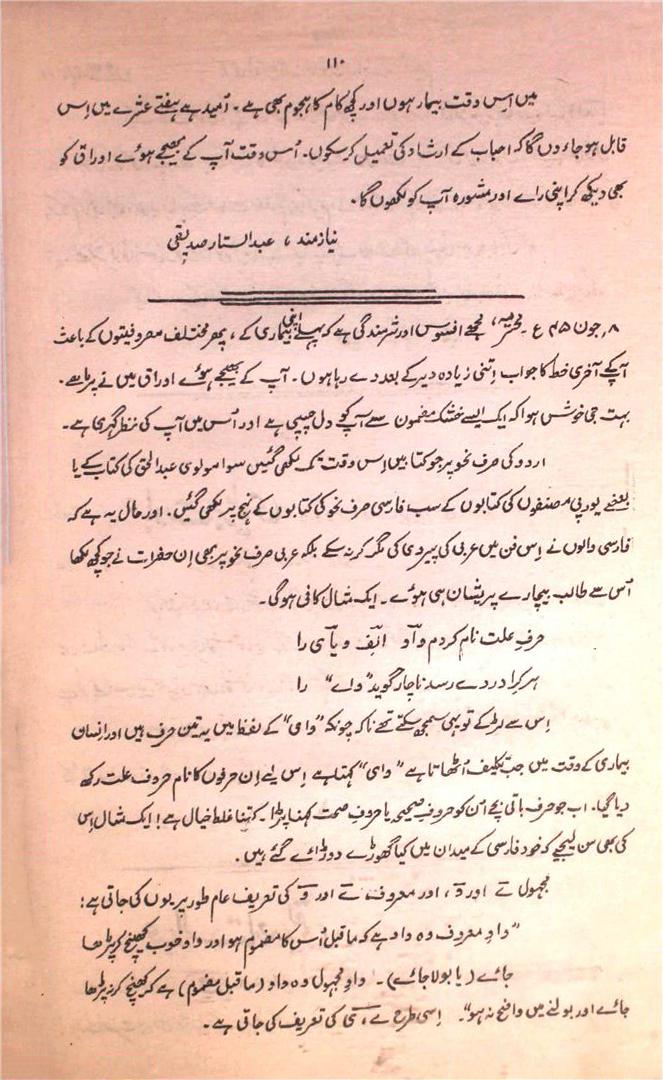 ۱۱۰
میں اس وقت بیمار ہوں اور کچھ کام کا ہجوم بھی ہے۔ اُمید ہے ہفتے عشرے میں اِس
قابل ہو جاءوں گا کہ احباب کے ارشاد کی تعمیل کر سکوں۔ اُس وقت آپ کے بھیجے ہوئے اوراق کو
بھی دیکھ کر اپنی راے اور مشورہ آپ کو لکھوں گا۔
نیاز مند، عبدالستار صدیقی
۸؍ جون ۴۵ ع ۔ محترمہ، مجھے افسوس اور شرمندگی ہے کہ پہلے اپنی بیماری کے، پھر مختلف مصروفیتوں کے باعث
آپکے آخری خط کا جواب اِتنی زیادہ دیر کے بعد دے رہا ہوں۔ آپ کے بھیجے ہوئے اوراق میں نے پڑھے۔
بہت جی خوش ہوا کہ ایک ایسے خشک مضمون سے آپ کو دل چسپی ہے اور اُس میں آپ کی نظر گہری ہے۔
اردو کی صرف نحو پر جو کتابیں اِس وقت تک لکھی گئیں سوا مولوی عبدالحق کی کتاب کے یا
بعضے یورپی مصنفوں کی کتابوں کے سب فارسی صرف نحو کی کتابوں کے نہج پر لکھی گئیں۔ اور حال یہ ہے کہ
فارسی والوں نے اِس فن میں عربی کی پیروی کی مگر کر نہ سکے بلکہ عربی صرف نحو پر بھی اِن حضرات نے جو کچھ لکھا
اُس سے طالب بیچارے پریشان ہی ہوئے۔ ایک مثال کافی ہوگی۔
حرفِ علت نام کردم واو الف و یاے را
ہر کرا دردے رسد ناچار گوید "واے" را
اِس سے لڑکے تو یہی سمجھ سکتے تھے نا کہ چونکہ "واے" کے لفظ میں یہ تین حرف ہیں اور انسان
بیماری کے وقت میں جب تکلیف اُٹھاتا ہے "واے" کہتا ہے اِس لیے اِن حرفوں کا نام حروف علت رکھ
دیا گیا۔ اب جو حرف باقی بچے اُن کو حروفِ صحیح یا حروفِ صحت کہنا پڑا۔ کتنا غلط خیال ہے! ایک مثال اِس
کی بھی سن لیجیے کہ خود فارسی کے میدان میں کیا گھوڑے دوڑائے گئے ہیں۔
مجہول ے اور و، اور معروف ے اور و کی تعریف عام طور پر یوں کی جاتی ہے:
"واوِ معروف وہ واو ہے کہ ماقبل اُس کا مضموم ہو اور واو خوب کھینچ کر پڑھا
جائے (یا بولا جائے)۔ واوِ مجہول وہ واو (ماقبل مضموم) ہے کہ کھینچ کر نہ پڑھا
جائے اور بولنے میں واضح نہ ہو"۔ اِسی طرح ے، ی کی تعریف کی جاتی ہے۔